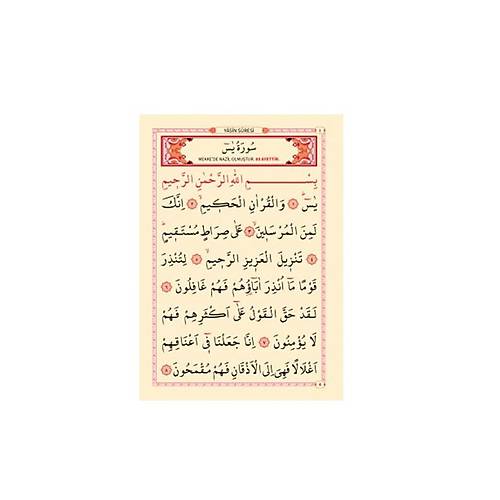 YÂSÎN SÛRESİ
سُورَةُ يٰسٓ
MEKKE'DE NAZİL OLMUŞTUR. 83 AYETTİR.
بِسْمِ اللّٰهِ الرَّحْمٰنِ الرَّحٖيمِ
يٰسٓ ۞١ وَالْقُرْاٰنِ الْحَكٖيمِ ۞٢ اِنَّكَ
لَمِنَ الْمُرْسَلٖينَ ۞٣ عَلٰى صِرَاطٍ مُسْتَقٖيمٍ
۞٤ تَنْزٖيلَ الْعَزٖيزِ الرَّحٖيمِ ۞٥ لِتُنْذِرَ
قَوْمًا مَٓا اُنْذِرَ اٰبَٓاؤُ۬هُمْ فَهُمْ غَافِلُونَ ۞٦
لَقَدْ حَقَّ الْقَوْلُ عَلٰٓى اَكْثَرِهِمْ فَهُمْ
لَا يُؤْمِنُونَ ۞٧ اِنَّا جَعَلْنَا فٖٓي اَعْنَاقِهِمْ
اَغْلَالًا فَهِيَ اِلَى الْاَذْقَانِ فَهُمْ مُقْمَحُونَ ۞٨